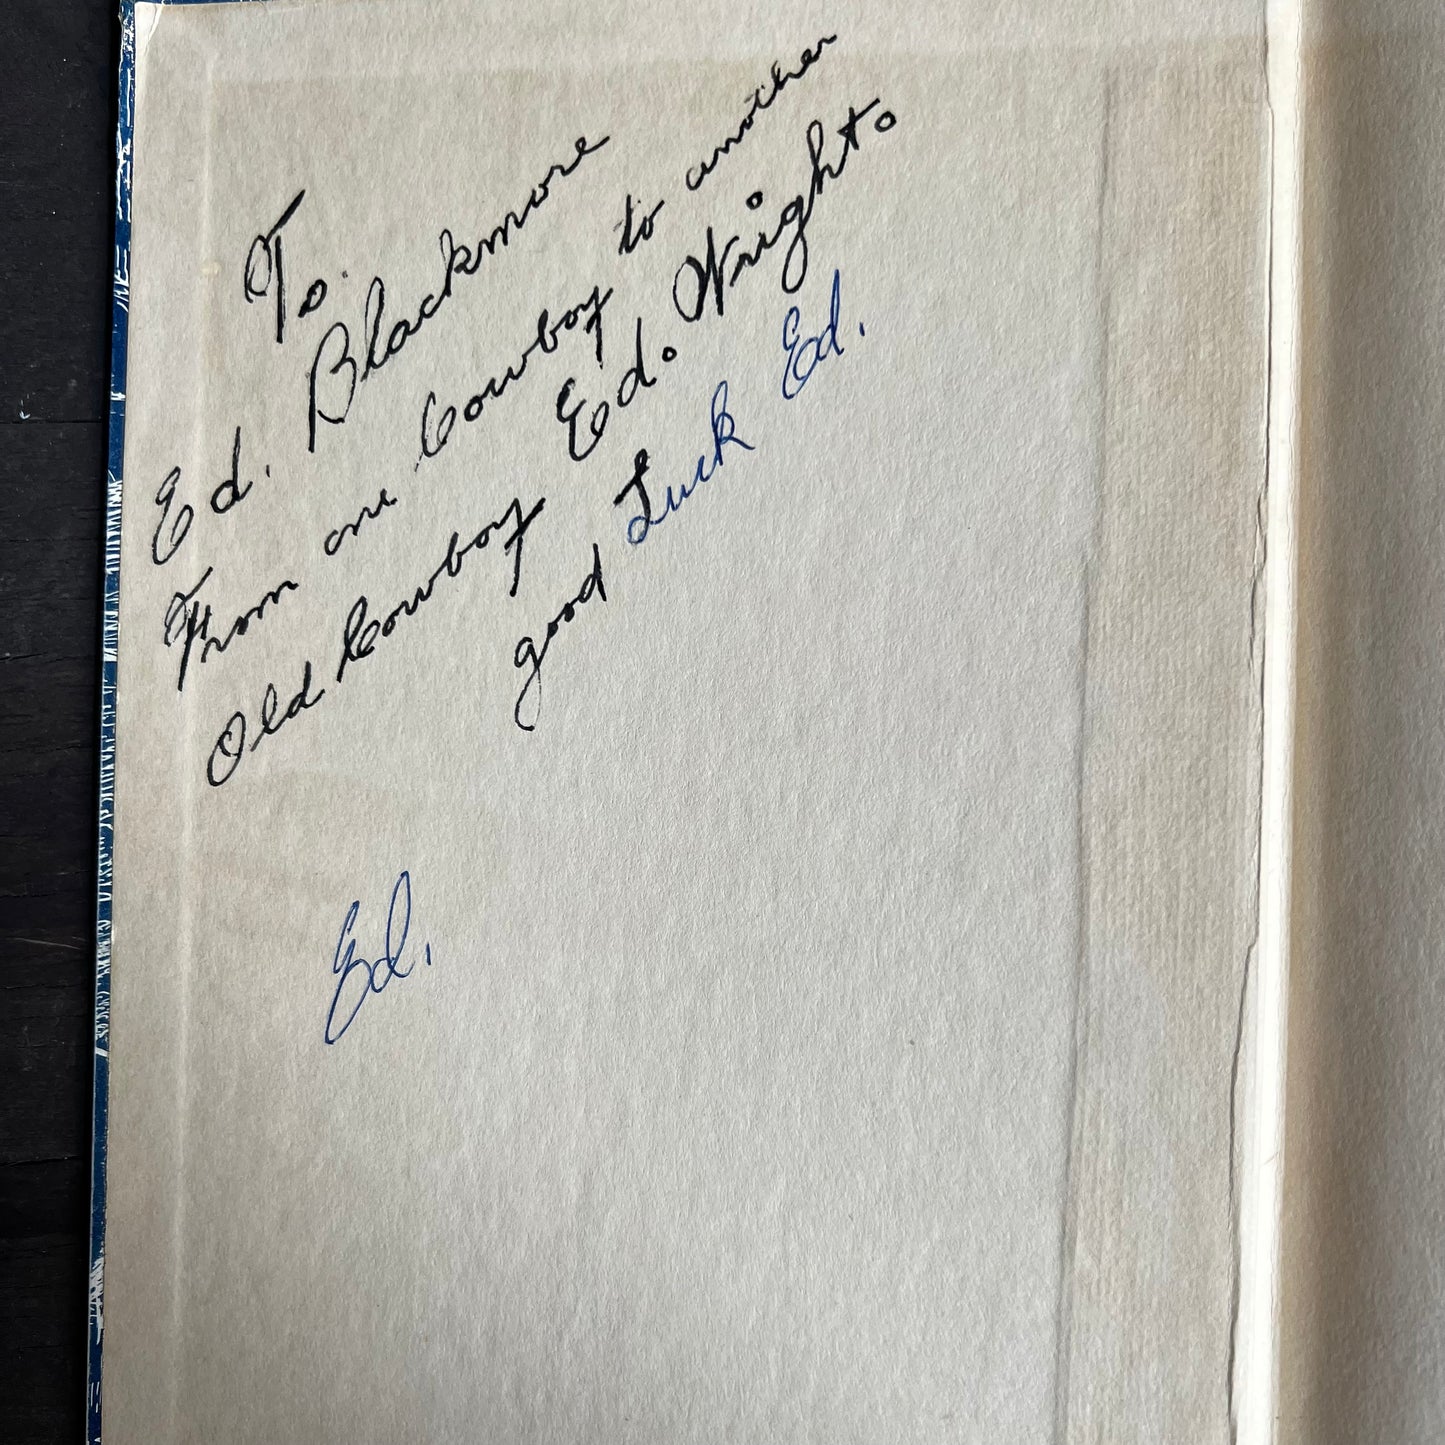 To.
Ed. Blackmore
From one Cowboy to another
Old Cowboy Ed. Wright.
good Luck Ed.
Ed.